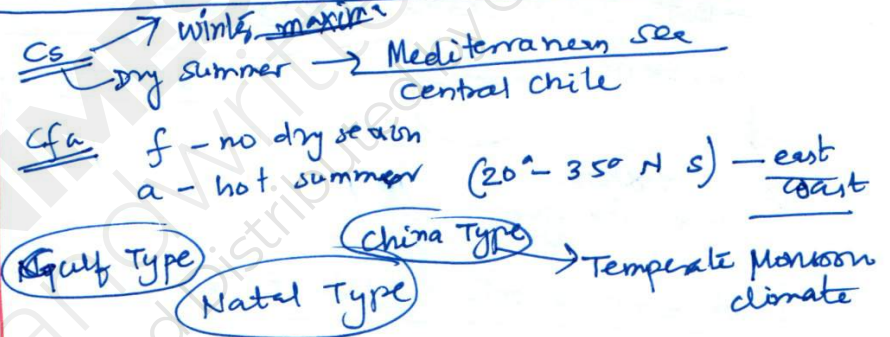 Cs → Winter maxima
Dry summer → Mediterranean sea
central chile
Cfa f - no dry season
a - hot summer (20° - 35° N S) - east coast
Gulf Type
China Type → Temperate Monsoon climate
Natal Type